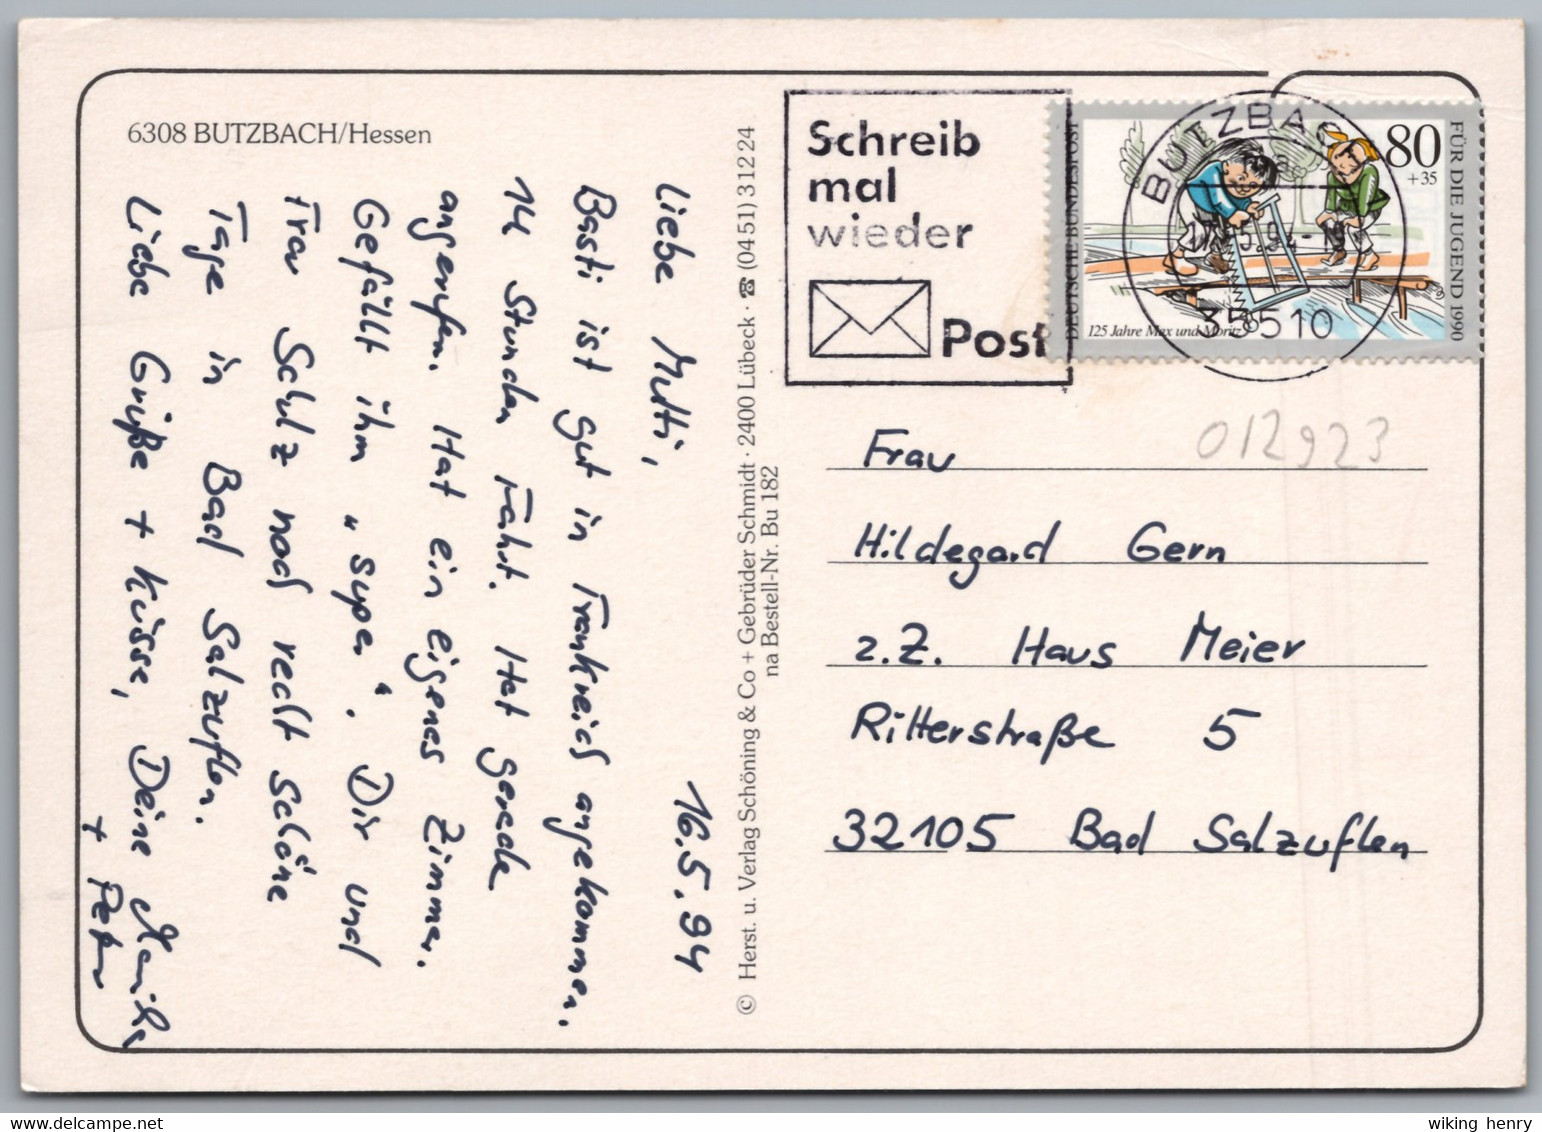 6308 BUTZBACH/Hessen
16.5.94
Liebe Mutti,
Basti ist gut in Frankreich angekommen.
14 Stunden Fahrt. Hat gerade
angerufen. Hat ein eigenes Zimmer.
Gefällt ihm „super“. Dir und
Frau Schulz noch recht schöne
Tage in Bad Salzuflen.
Liebe Grüße + Küsse, Deine Monika
+ Peter
© Herst. u. Verlag Schöning & Co + Gebrüder Schmidt · 2400 Lübeck · ☎ (04 51) 3 12 24
na Bestell-Nr. Bu 182
Schreib
mal
wieder
Post
BUTZBACH
35510
DEUTSCHE BUNDESPOST
80
+35
FÜR DIE JUGEND 1990
125 Jahre Max und Moritz
012923
Frau
Hildegard Gern
z.Z. Haus Meier
Ritterstraße 5
32105 Bad Salzuflen
wiking henry